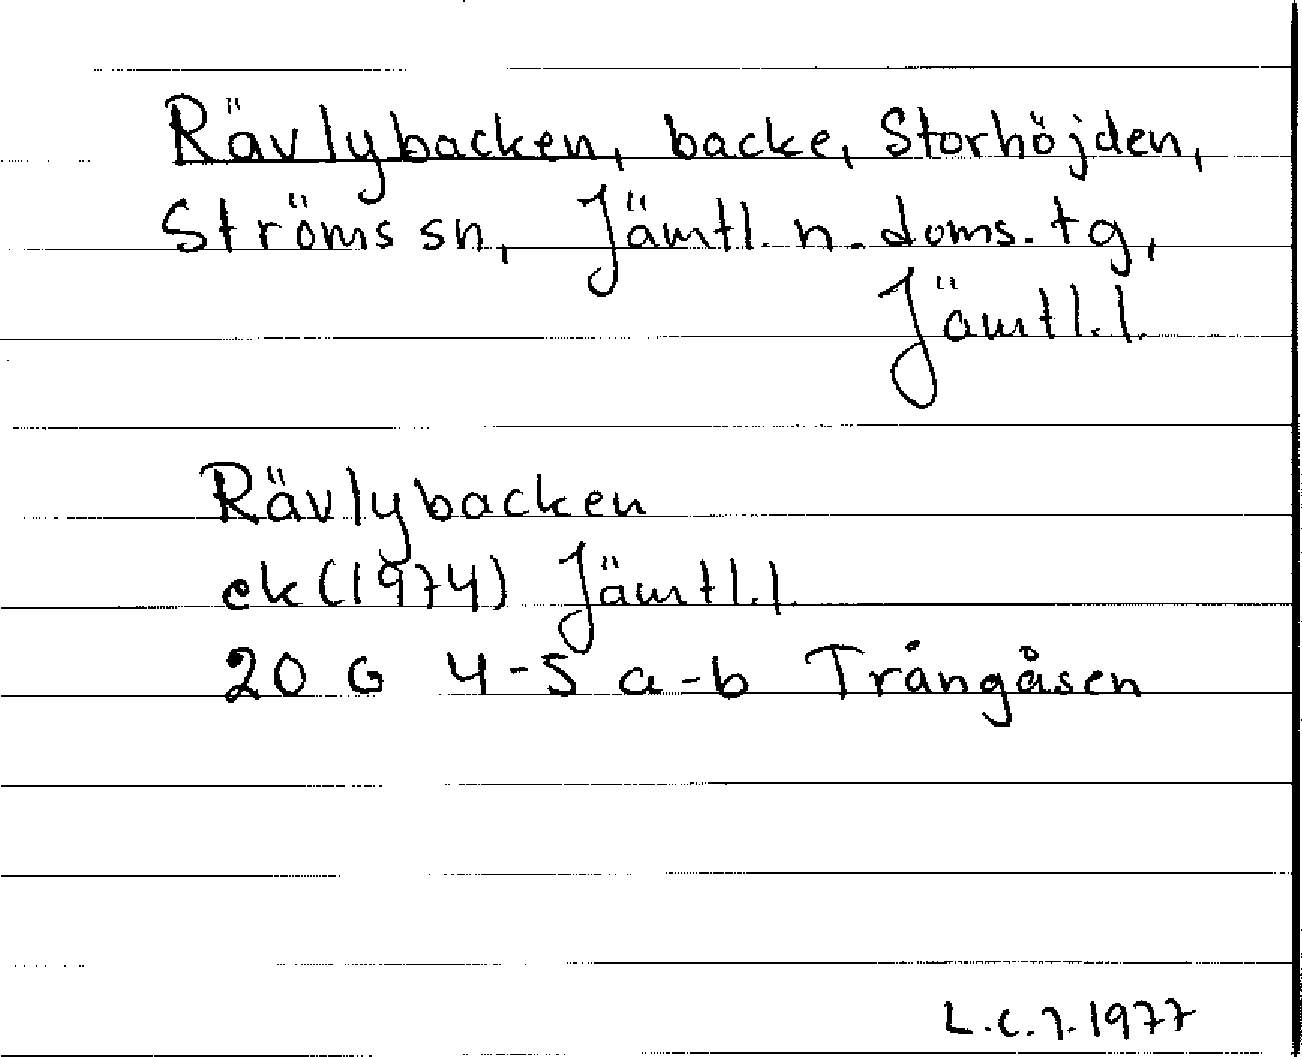 Rävlybacken, backe, Storhöjden,
Ströms sn, Jämtl. n. doms. tg,
Jämtl. l.
Rävlybacken
ek (1974) Jämtl. l.
20 G 4-5 a-b Trångåsen
L.C.J. 1977